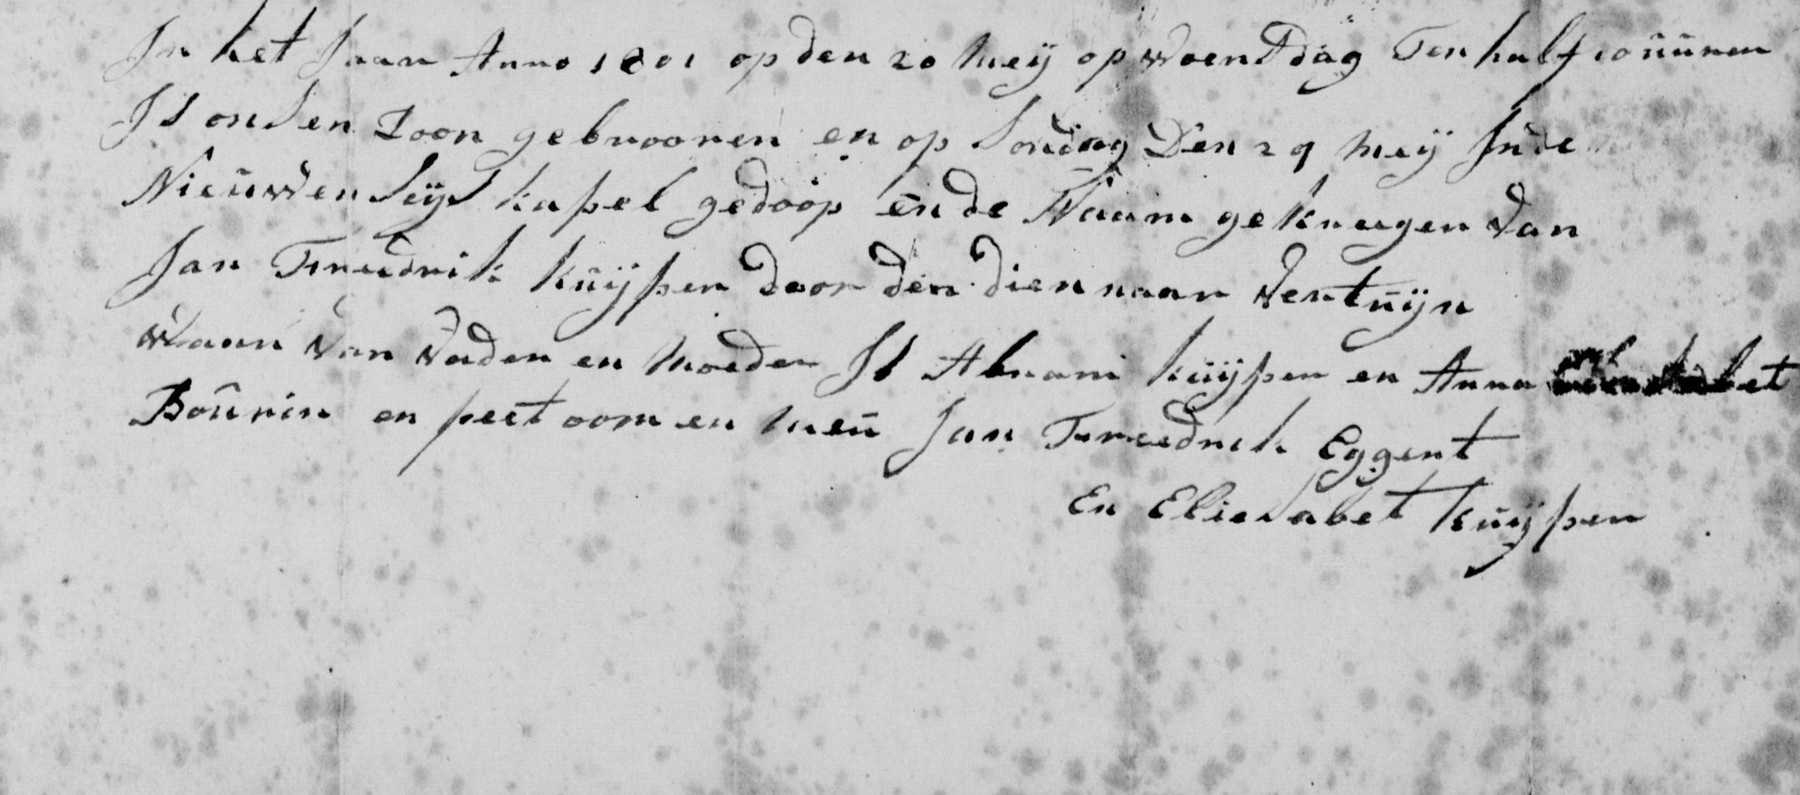 In het Jaar Anno 1801 op den 20 Meij op Woensdag Ten half 10 uuren
Is onsen Zoon gebrooren en op Sondag Den 29 Meij In de
Nieuwen Seijs kapel gedoop en de Naam gekreegen van
Jan Freedrik Kuijper door den dienaar Vertuijn
Waar van vader en Moeder Is Abram Kuijper en Anna
Bourin en peet oom en Meu Jan Freedrik Eggert
En Eliesabet Kuijper